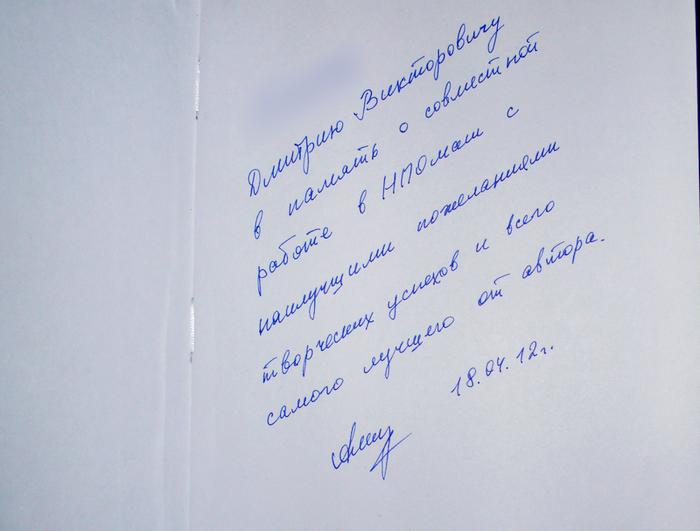 Дмитрию Викторовичу
в память о совместной
работе в НПОмаш с
наилучшими пожеланиями
творческих успехов и всего
самого лучшего от автора.
18.04.12г.